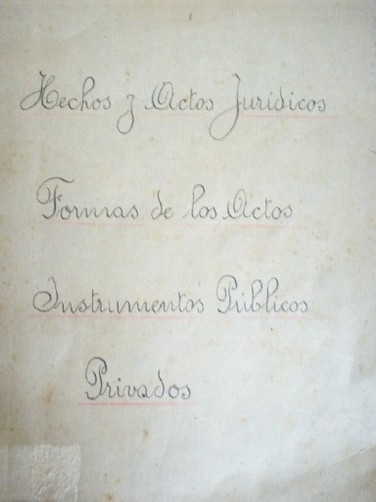 Hechos y Actos Jurídicos
Formas de los Actos
Instrumentos Públicos
Privados